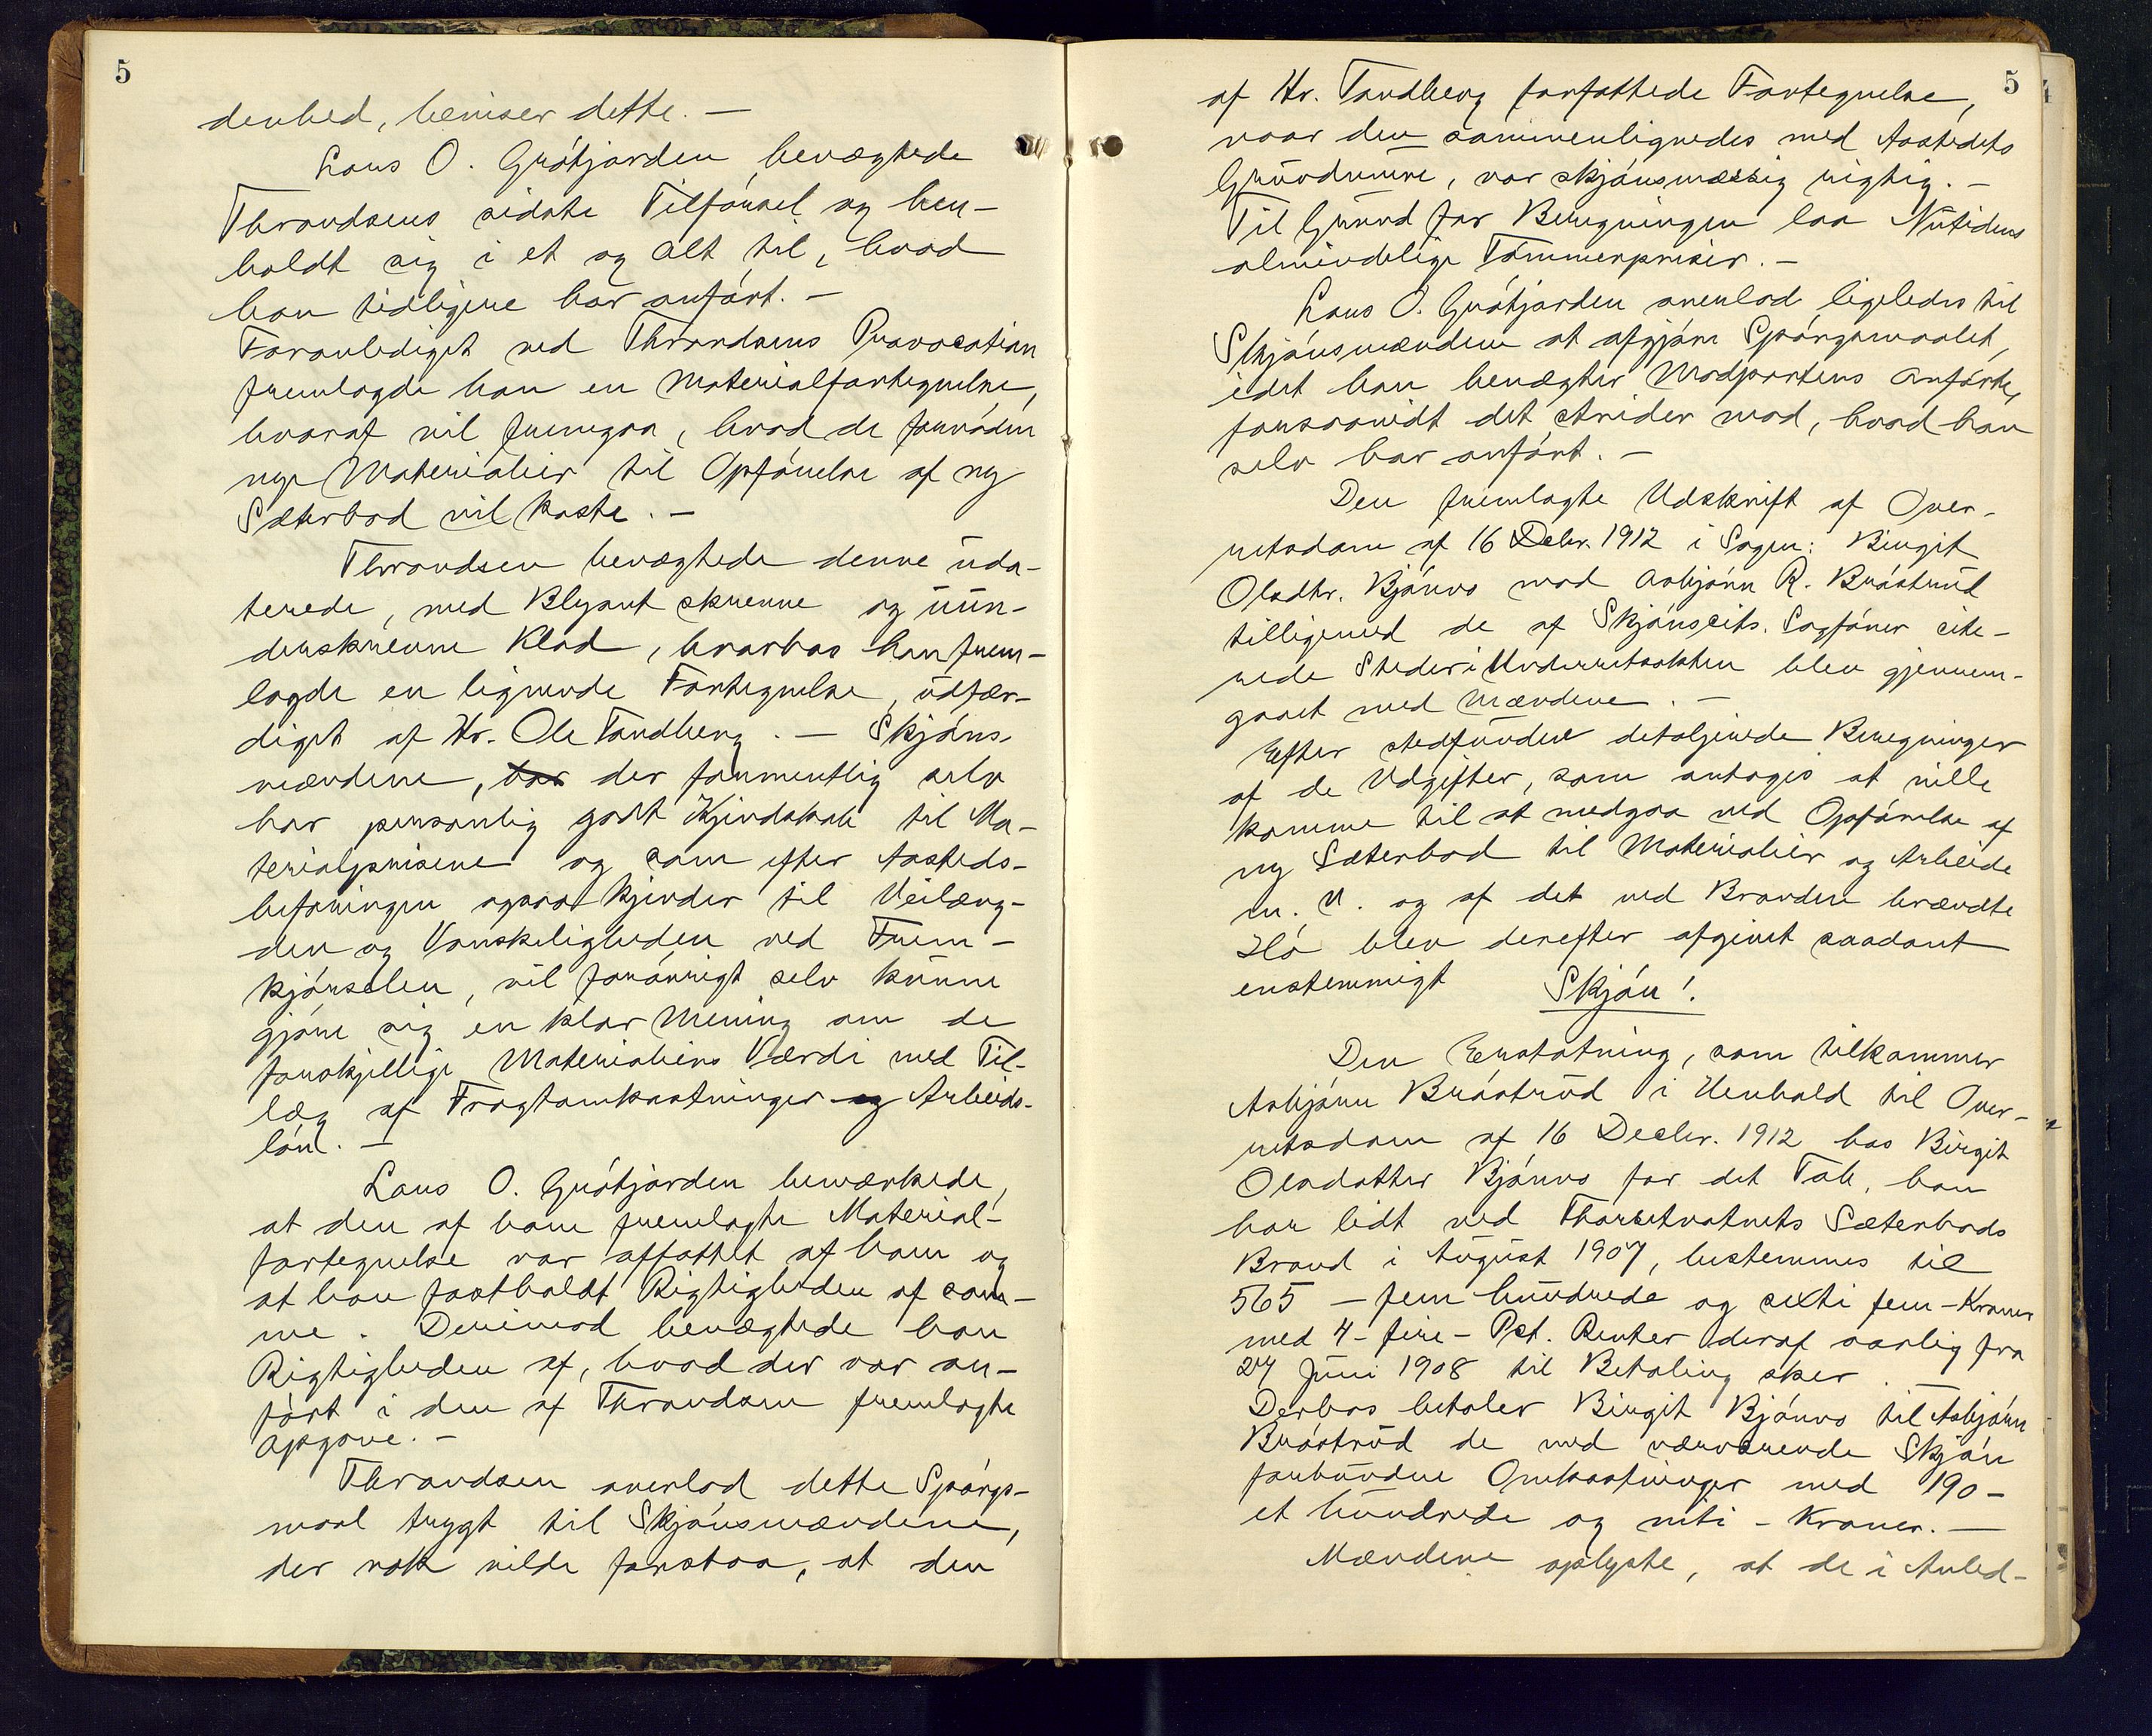 5
denhed, beviser dette. —
Lars O. Grótjorden benægtede
Throndsens sidste Tilførsel og hen-
holdt sig i et og alt til, hvad
han tidligere har anført. —
Foranlediget ved Throndsens Provocation
fremlagde han en Materialfortegnelse,
hvoraf vil fremgaa, hvad de fornødne
nye Materialier til Opførelse af ny
Sæterbod vil koste. —
Throndsen benægtede denne uda-
terede, med Blyant skrevne og uun-
derskrevne Klad, hvorhos han frem-
lagde en lignende Fortegnelse, udfær-
diget af Hr. Ole Tandberg. — Skjøns-
mændene, har der formentlig selv
har personlig godt Kjendskab til Ma-
terialpriserne og som efter Aasteds-
befaringen ogsaa kjender til Veilæng-
den og Vanskeligheden ved Frem-
kjørselen, vil forøvrigt selv kunne
gjøre sig en klar Mening om de
forskjellige Materialiers Værdi med Til-
læg af Fragtomkostninger og Arbeids-
løn. —
Lars O. Grótjorden bemærkede,
at den af ham fremlagte Material-
fortegnelse var affattet af ham og
at han fastholdt Rigtigheden af sam-
me. Derimod benægtede han
Rigtigheden af, hvad der var an-
ført i den af Throndsen fremlagte
Opgave. —
Throndsen overlod dette Spørgs-
maal trygt til Skjønsmændene,
der nok vilde forstaa, at den
5
af Hr. Tandberg forfattede Fortegnelse,
naar den sammenlignedes med Aastedets
Grundmure, var skjønsmæssig rigtig. —
Til Grund for Beregningen laa Nutidens
almindelige Tømmerpriser. —
Lars O. Grótjorden overlod ligeledes til
Skjønsmændene at afgjøre Spørgsmaalet,
idet han benægter Modpartens Anførte,
forsaavidt det strider mod, hvad han
selv har anført. —
Den fremlagte Udskrift af Over-
retsdom af 16 Debr. 1912 i Sagen: Birgit
Olsdtr. Bjørvs mod Asbjørn R. Bråstrud
tilligemed de af Skjønscits. Sagfører cite-
rede Steder i Underretsakten blev gjennem-
gaaet med Mændene. —
Efter stedfunden detaljerede Beregninger
af de Udgifter, som antages at ville
komme til at medgaa ved Opførelse af
ny Sæterbod til Materialier og Arbeide
m. v. og af det ved Branden brændte
Hø blev derefter afgivet saadant
enstemmigt Skjøn!
Den Erstatning, som tilkommer
Asbjørn Bråstrud i Henhold til Over-
retsdom af 16 Decbr. 1912 hos Birgit
Olsdatter Bjørvs for det Tab, han
har lidt ved Thorsetvatnets Sæterbods
Brand i August 1907, bestemmes til
565 — fem hundrede og sexti fem — Kroner
med 4 - fire - Pct. Renter deraf aarlig fra
27 Juni 1908 til Betaling sker. —
Derhos betaler Birgit Bjørvs til Asbjørn
Bråstrud de med nærværende Skjøn
forbundne Omkostninger med 190 —
et hundrede og niti - Kroner. —
Mændene oplyste, at de i Anled-